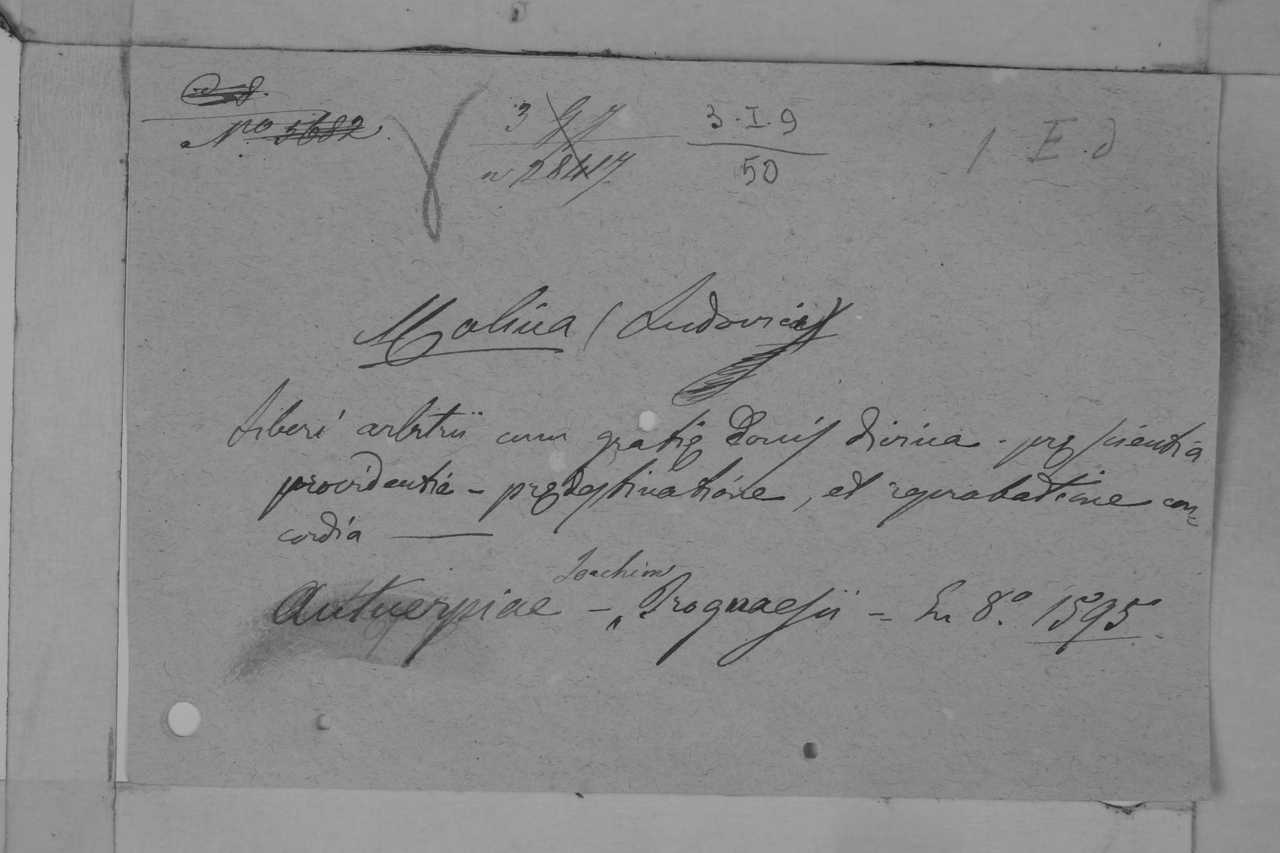 Nº 5682
3 87
n 28417
3-I-9
50
1 E.d
Molina (Ludovicus)
Liberi arbitrii cum gratię donis divina - pręscientia
providentia - prędestinatione, et reprobatione con=
cordia
Joachim
Antuerpiae - Trognaesii - En 8º. 1595